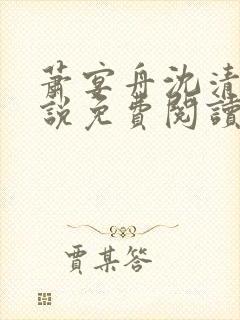 蕭宴舟沈清
說免費閱讀
賈某答